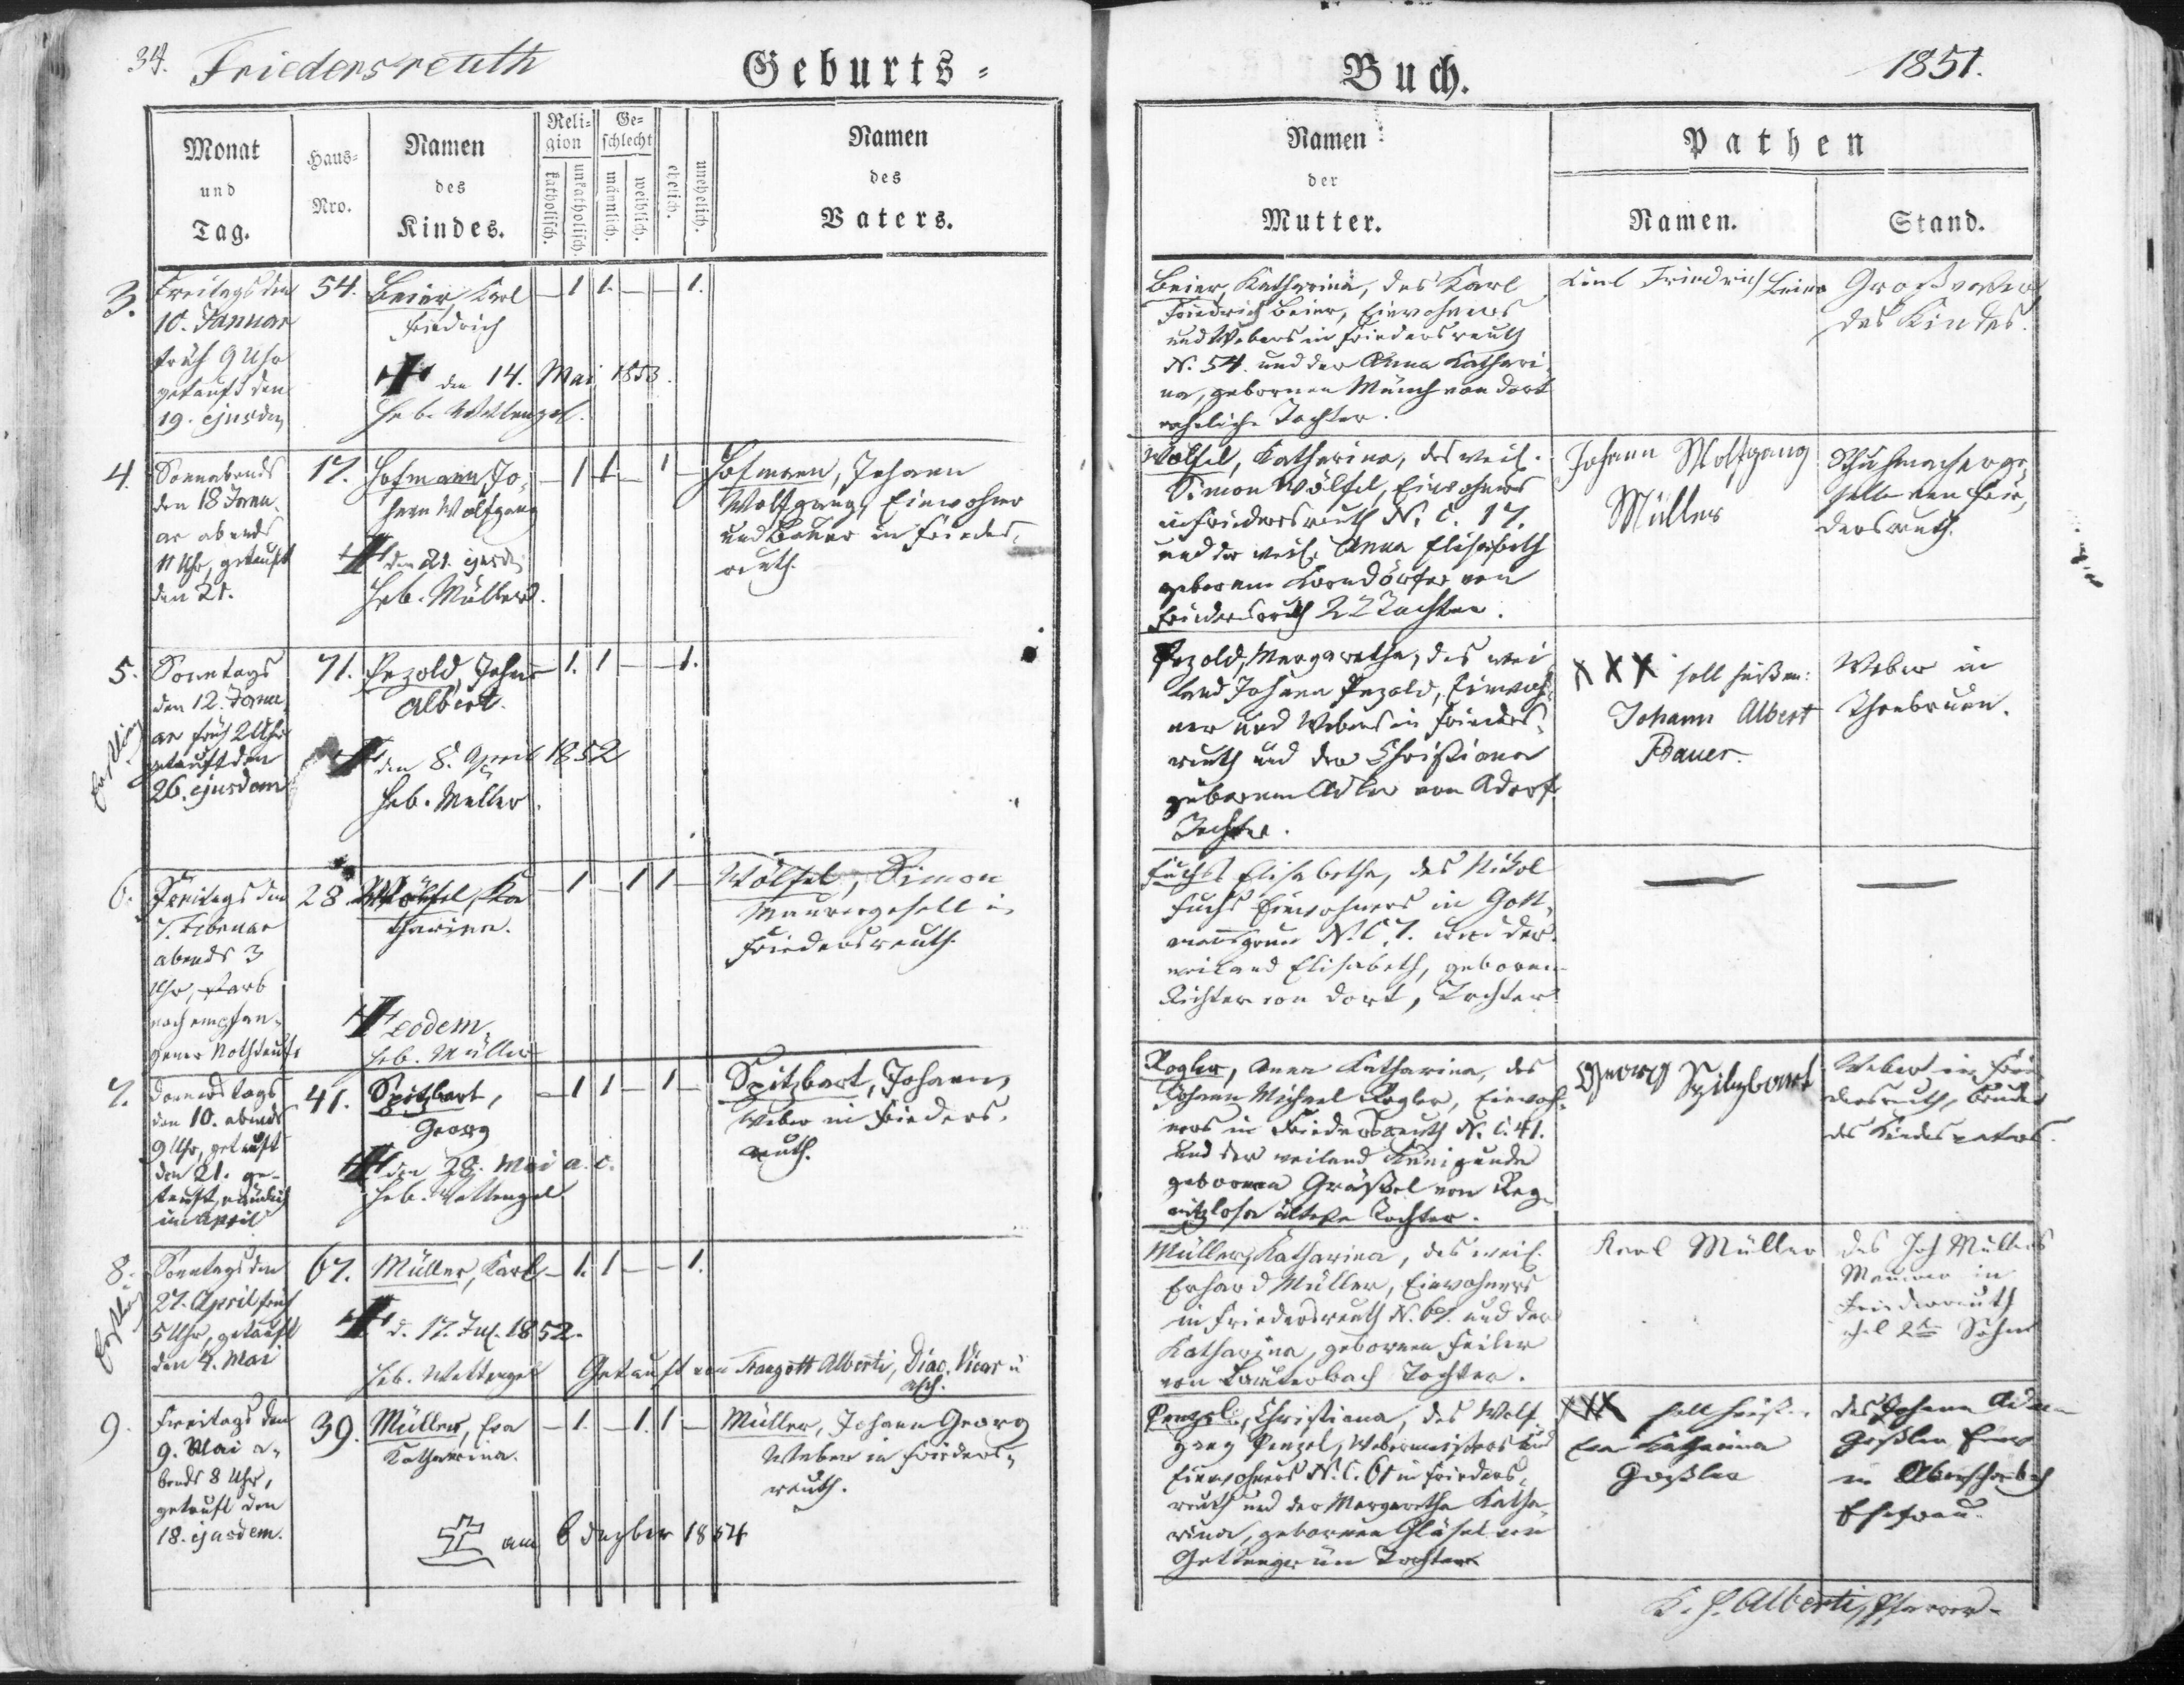 34. Friedersreuth
Geburts=
Buch.
1851.
Monat
und
Tag.
Haus=
Nro.
Namen
des
Kindes.
Reli=
gion
katholisch.
unkatholisch.
Ge=
schlecht
männlich.
weiblich.
ehelich.
unehelich.
Namen
des
Vaters.
Namen
der
Mutter.
Pathen
Namen.
Stand.
3.
Freitags den
10. Januar
früh 9 Uhr
getauft den
19. ejusdem
54.
Beier, Karl
Friedrich
den 14. Mai 1853.
Heb. Wettengel.
1 1. 1.
Beier, Katharina, des Karl
Friedrich Beier, Einwohners
und Webers in Friedersreuth
N. 54. und der Anna Kathari
na, gebornen Münch von dort
eheliche Tochter.
Karl Friedrich Beier
Großvater
des Kindes.
4.
Sonnabends
den 18 Janu
ar abends
11 Uhr, getauft
den 21.
17.
Hofmann, Jo-
hann Wolfgang
den 21. ejusd.
Heb. Müller.
1 1 1
Hofmann, Johann
Wolfgang, Einwohner
und Bauer in Frieders,
reuth.
Wölfel, Katharina, des weil.
Simon Wölfel, Einwohners
in Friedersreuth N. C. 17.
und der weil. Anna Elisabeth
gebornen Korndörfer von
Friedersreuth 2 Tochter.
Johann Wolfgang
Müller
Schuhmacherge,
selle von Frie,
dersreuth.
5.
Erstling
Sonntags
den 12. Janu
ar früh 2 Uhr
getauft den
26. ejusdem
71.
Pezold, Johann
Albert.
den 8. April 1852
Heb. Müller.
1. 1 1.
Pezold, Margaretha, des wei
land Johann Pezold, Einwoh-
ner und Webers in Frieders-
reuth und der Christiana
gebornen Adler von Adorf
Tochter.
XXX soll heißen:
Johann Albert
Bauer.
Weber in
Thonbrunn.
6.
Freitags den
7. Februar
abends 3
Uhr, starb
nach empfan-
gener Nothtaufe
28
Wölfel, Ka
tharina.
eodem
Heb. Müller
1 1 1
Wölfel, Simon
Maurergesell in
Friedersreuth.
Fuchs Elisabetha, des Nikol
Fuchs Einwohners in Gott,
mannsgrün N. C. 7. und der
weiland Elisabeth, gebornen
Richter von dort, Tochter
7.
Donnerstags
den 10. abends
9 Uhr, getauft
den 21. ge-
tauft, nämlich
im April
41.
Spitzbart,
Georg
den 28. Mai a. c.
Heb. Wettengel
1 1 1
Spitzbart, Johann,
Weber in Frieders,
reuth.
Rogler, Anna Katharina, des
Johann Michael Rogler, Einwoh-
ners in Friedersreuth N. C. 41.
und der weiland Kunigunda
gebornen Gräßel von Reg-
nitzlosa älteste Tochter.
Georg Spitzbart
Weber in Frie
dersreuth, Bruder
des Kindesvaters.
8.
Erstling
Sonntags den
27. April früh
5 Uhr, getauft
den 4. Mai
67.
Müller, Karl
d. 17. Jul. 1852.
Heb. Wettengel
1. 1 1.
Getauft von Traugott Alberti, Diac. Vicar in
Asch.
Müller, Katharina, des weil.
Erhard Müller, Einwohners
in Friedersreuth N. 67. und der
Katharina, gebornen Feiler
von Lauterbach Tochter.
Karl Müller
des Joh Müllers
Maurer in
Friedersreuth
ehel 2ter Sohn
9.
Freitags den
9. Mai a-
bends 8 Uhr,
getauft den
18. ejusdem.
39.
Müller, Eva
Katharina.
am 6 Dezber 1854
1. 1. 1
Müller, Johann Georg
Weber in Frieders-
reuth.
Penzel, Christiana, des Wolf
gang Penzel, Webermeisters und
Einwohners N. C. 61 in Frieders,
reuth und der Margaretha Katha-
rina, gebornen Gläsel von
Gettengrün Tochter
XXX soll heißen
Eva Katharina
Goßler
des Johann Adam
Goßler Einw
in Oberschönbach
Ehefrau.
Alberti, Pfarrer